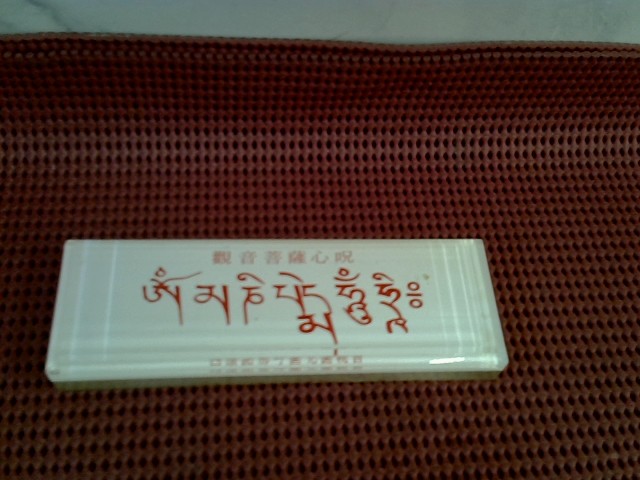 觀音菩薩心咒
ༀ མ ཎི པདྨེ ཧཱུྃ ཧྲཱིཿ